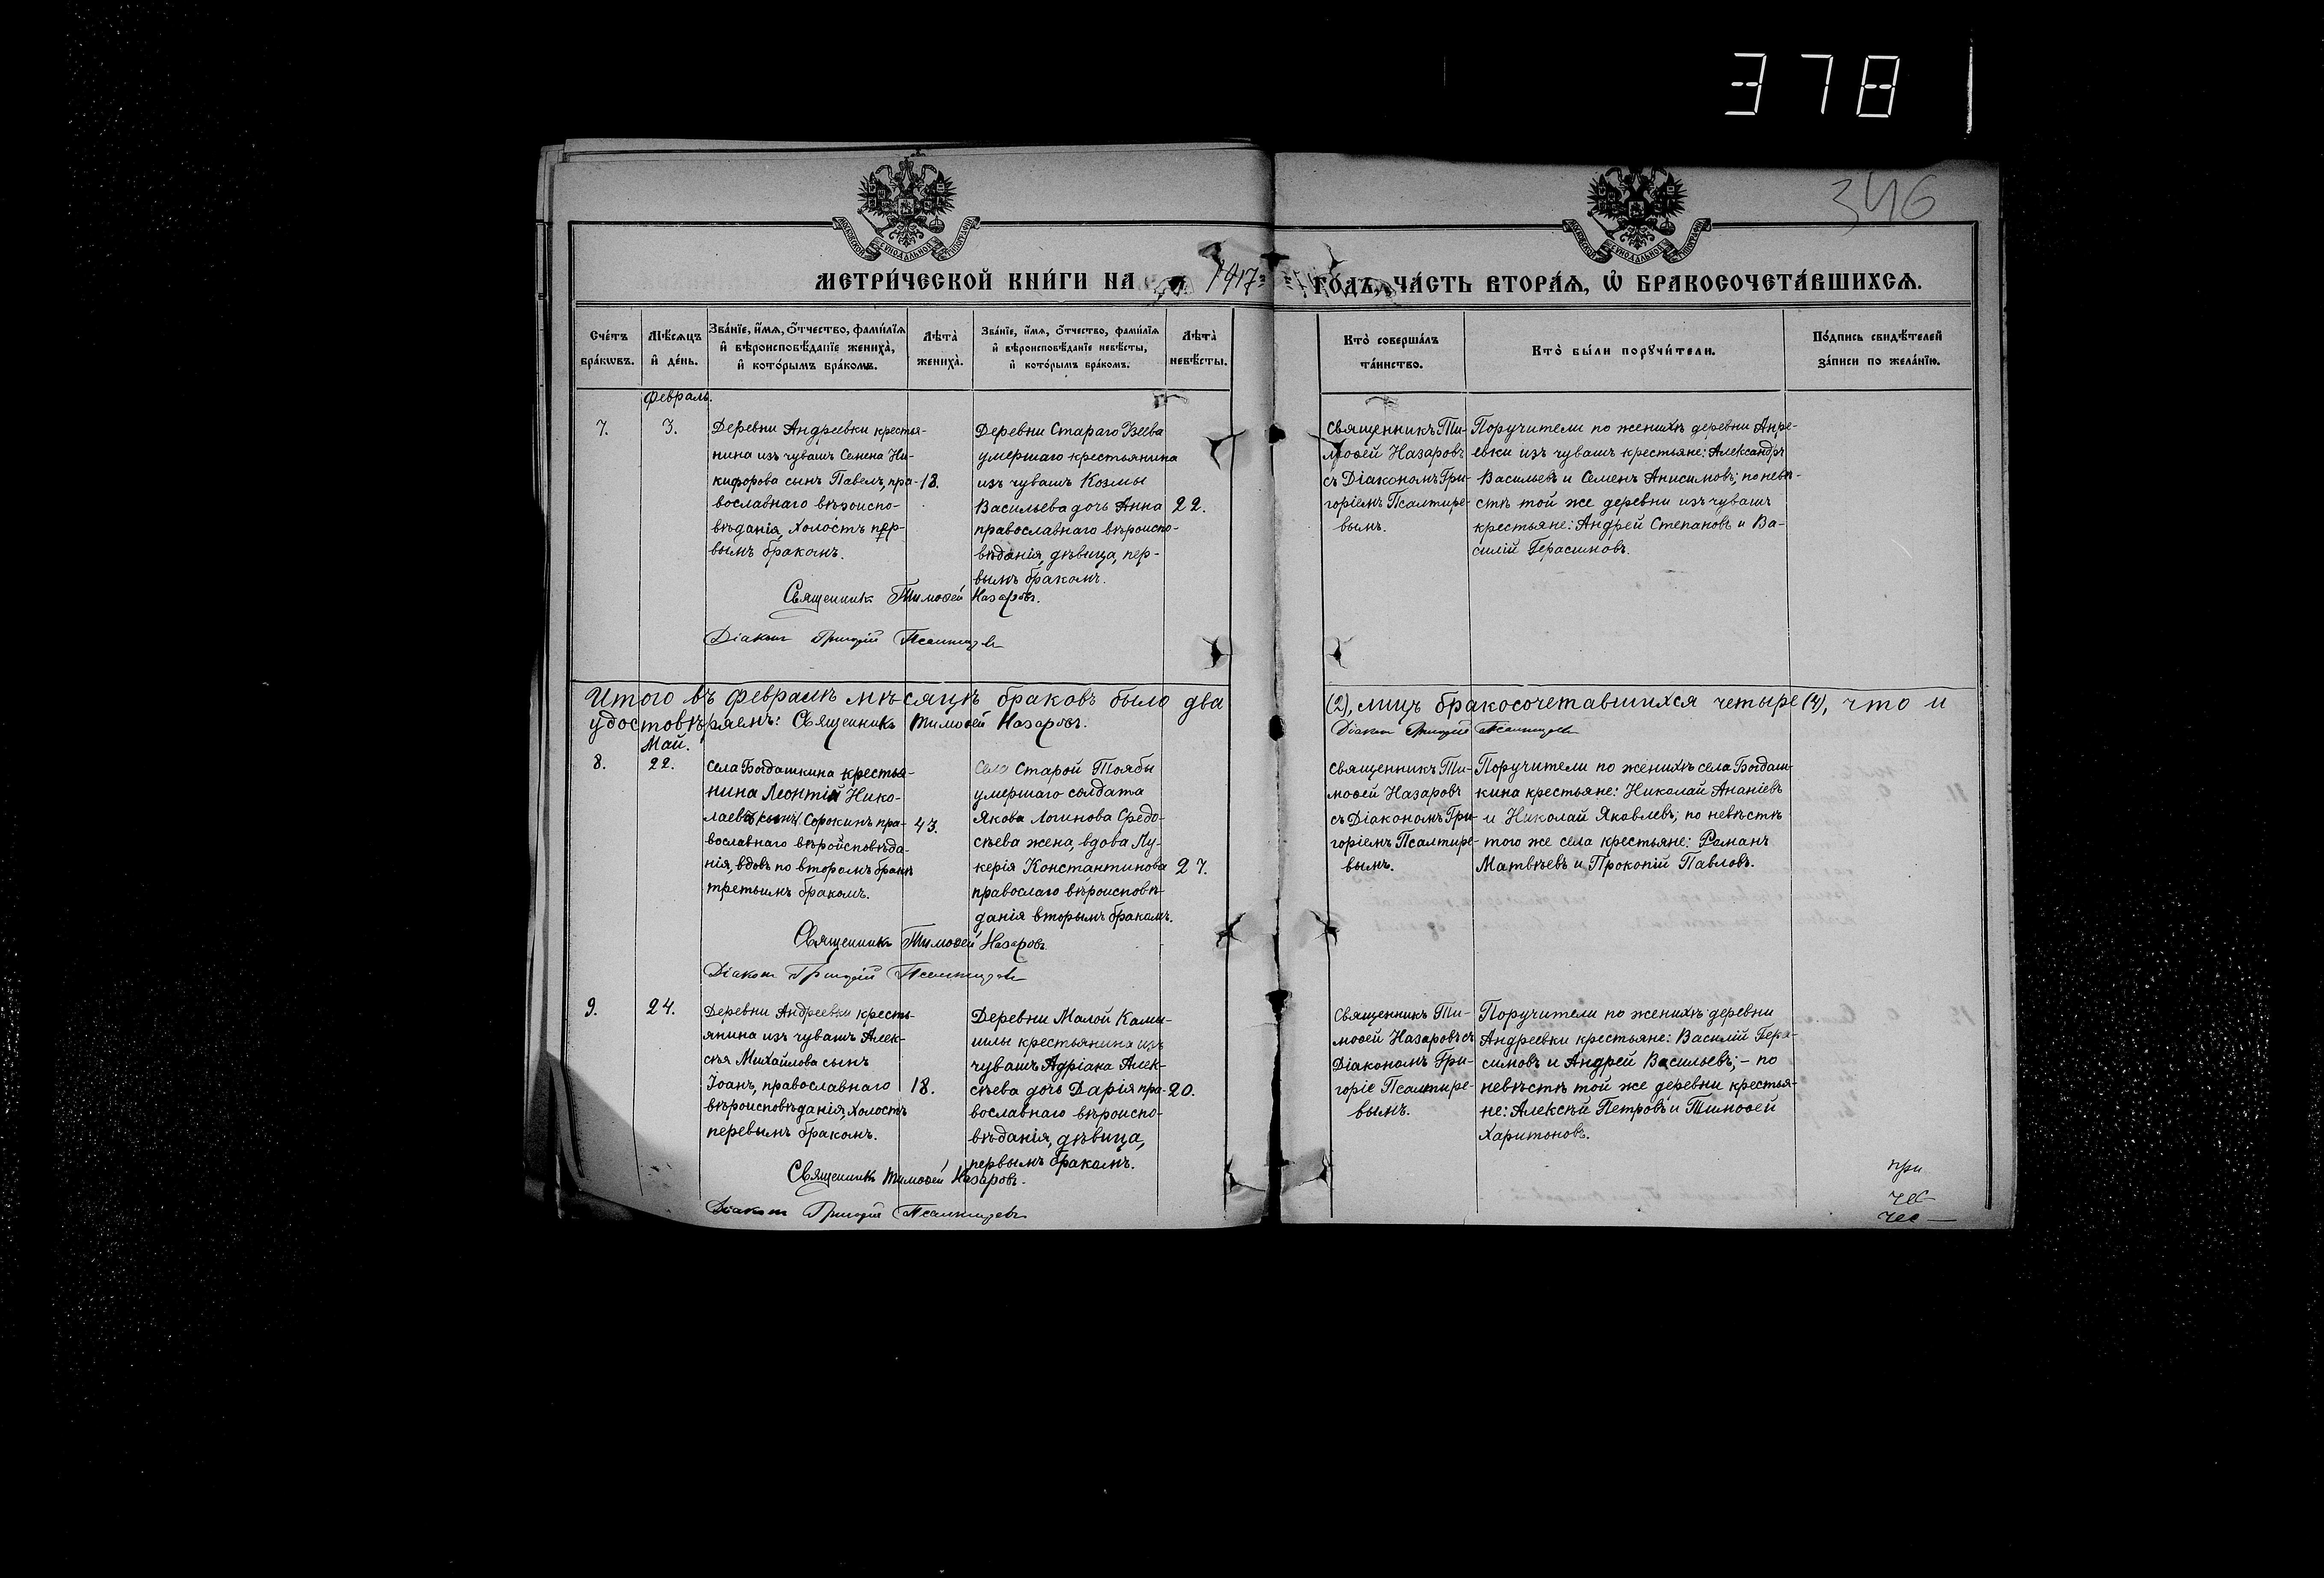 378
346
МЕТРИ́ЧЕСКОЙ КНИ́ГИ НА 1917 ГО́ДЪ, ЧА́СТЬ ВТОРА́Ѧ, Ѽ БРАКОСОЧЕТА́ВШИХСѦ.
Сче́тъ бра́кѡвъ.
Мѣ́сѧцъ и҆ де́нь.
Зва́нїе, и҆́мѧ, ѻ҆́тчество, фами́лїѧ и҆ вѣроисповѣ́данїе жениха̀, и҆ кото́рымъ бра́комъ.
Лѣта̀ жениха̀.
Зва́нїе, и҆́мѧ, ѻ҆́тчество, фами́лїѧ и҆ вѣроисповѣ́данїе невѣ́сты, и҆ кото́рымъ бра́комъ.
Лѣта̀ невѣ́сты.
Кто̀ соверша́лъ та́инство.
Кто̀ бы́ли порꙋчи́тели.
По́дпись свидѣ́телей за́писи по жела́нїю.
Февраль.
7.
3.
Деревни Андреевки крестья-
нина изъ чувашъ Семена Ни-
кифорова сынъ Павелъ, пра-
вославнаго вѣроиспо-
вѣданія, холостъ пер-
вымъ бракомъ.
18.
Деревни Стараго
умершаго крестьянина
изъ чувашъ Козмы
Васильева дочь Анна
православнаго вѣроиспо-
вѣданія, дѣвица, пер-
вымъ бракомъ.
22.
Священникъ Ти-
моѳей Назаровъ
съ Діакономъ Гри-
горіемъ Псалтире-
вымъ.
Поручители по женихѣ деревни Анре-
евки изъ чувашъ крестьяне: Александръ
Васильевъ и Семенъ Анисимовъ; по невѣ-
стѣ той же деревни изъ чувашъ
крестьяне: Андрей Степановъ и Ва-
силій Герасимовъ.
Священникъ Тимоѳей Назаровъ.
Діаконъ Григорій Псалтиревъ
Итого въ Февралѣ мѣсяцѣ браковъ было два (2), лицъ бракосочетавшихся четыре (4), что и
удостовѣряемъ: Священникъ Тимоѳей Назаровъ. Діаконъ Григорій Псалтиревъ
Май.
8.
22.
Села Богдашкина крестья-
нина Леонтій Нико-
лаевъ Сорокинъ пра-
вославнаго вѣроисповѣда-
нія, вдовъ по второмъ бракѣ
третьимъ бракомъ.
43.
Села Старой Тоябы
умершаго солдата
Якова Логинова Средо-
снѣева жена, вдова Лу-
керія Константинова
правослаго вѣроисповѣ-
данія вторымъ бракомъ.
27.
Священникъ Ти-
моѳей Назаровъ
съ Діакономъ Гри-
горіемъ Псалтире-
вымъ.
Поручители по женихѣ села Богдаш-
кина крестьяне: Николай Ананіевъ
и Николай Яковлевъ; по невѣстѣ
того же села крестьяне: Романъ
Матвѣевъ и Прокопій Павловъ.
Священникъ Тимоѳей Назаровъ.
Діаконъ Григорій Псалтиревъ
9.
24.
Деревни Андреевки кресть-
янина изъ чувашъ Алек-
сѣя Михайлова сынъ
Іоанъ, православнаго
вѣроисповѣданія, холостъ
перевымъ бракомъ.
18.
Деревни Малой Камы-
шлы крестьянина изъ
чувашъ Адріана Алек-
сѣева дочь Дарія пра-
вославнаго вѣроиспо-
вѣданія, дѣвица,
первымъ бракомъ.
20.
Священникъ Ти-
моѳей Назаровъ съ
Діакономъ Гри-
горіе Псалтире-
вымъ.
Поручители по женихѣ деревни
Андреевки крестьяне: Василій Гера-
симовъ и Андрей Васильевъ; – по
невѣстѣ той же деревни крестья-
не: Алексѣй Петровъ и Тимоѳей
Харитоновъ.
Священникъ Тимоѳей Назаровъ.
Діаконъ Григорій Псалтиревъ
при